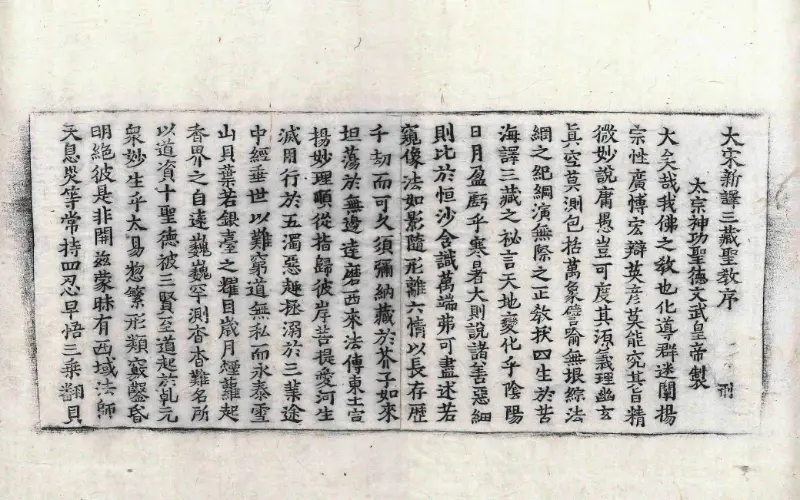 大宋新譯三藏聖教序
刑
太宗神功聖德文武皇帝製
大矣哉我佛之教也化導群迷闡揚
宗性廣博宏辯英彥莫能究其旨精
微妙說庸愚豈可度其源義理幽玄
眞空莫測包括萬象譬喻無垠綜法
網之紀綱演無際之正教拔四生於苦
海譯三藏之祕言天地變化乎陰陽
日月盈虧乎寒暑大則說諸善惡細
則比於恒沙含識萬端弗可盡述若
窺像法如影隨形離六情以長存歷
千劫而可久須彌納藏於芥子如來
坦蕩於無邊達磨西來法傳東土宣
揚妙理順從指歸彼岸菩提愛河生
滅用行於五濁惡趣拯溺於三業途
中經垂世以難窮道無私而永泰雪
山貝葉若銀臺之耀目歲月煙蘿起
香界之自遠巍巍罕測杳杳難名所
以道資十聖德被三賢至道起於乹元
衆妙生乎太易惣繁形類竅鑿昏
明絕彼是非開茲蒙昧有西域法師
天息災等常持四忍早悟三乘翻貝